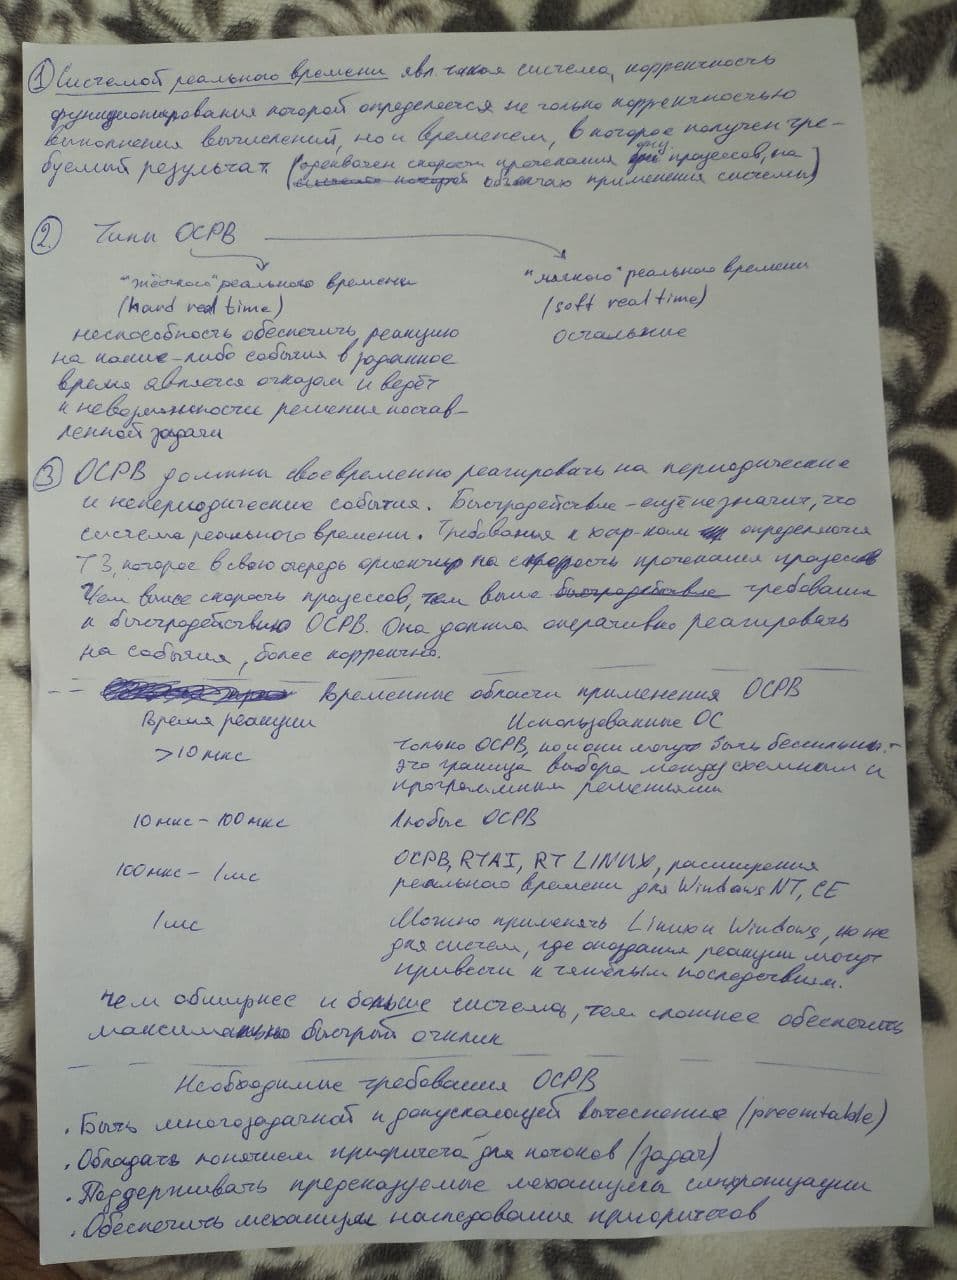 ① Системой реального времени явл. такая система, корректность
функционирования которой определяется не только корректностью
выполнения вычислений, но и временем, в которое получен тре-
буемый результат. (адекватен скорости протекания физ процессов, на
объектах применения системы)
2. Типы ОСРВ
"жёсткого" реального времени
(hard real time)
неспособность обеспечить реакцию
на какие-либо события в заданное
время является отказом и ведёт
к невозможности решения постав-
ленной задачи
"мягкого" реального времени
(soft real time)
остальные
③ ОСРВ должны своевременно реагировать на периодические
и непериодические события. Быстродействие - ещё не значит, что
система реального времени. Требования к хар-кам определяются
ТЗ, которое в свою очередь ориентир на скорость протекания процессов
Чем выше скорость процессов, тем выше требования
к быстродействию ОСРВ. Она должна оперативно реагировать
на события, более корректно.
Временные области применения ОСРВ
Время реакции Использованные ОС
>10 мкс только ОСРВ, но и они могут быть бессильны -
это граница выбора между схемным и
программным решениями
10 мкс - 100 мкс Любые ОСРВ
100 мкс - 1 мс ОСРВ, RTAI, RT LINUX, расширения
реального времени для Windows NT, CE
1 мс Можно применять Linux и Windows, но не
для систем, где опоздания реакции могут
привести к тяжёлым последствиям.
Чем обширнее и больше система, тем сложнее обеспечить
максимально быстрый отклик
Необходимые требования ОСРВ
. Быть многозадачной и допускающей вытеснение (preemtable)
. Обладать понятием приоритета для потоков (задач)
. Поддерживать предсказуемые механизмы синхронизации
. Обеспечить механизм наследования приоритетов